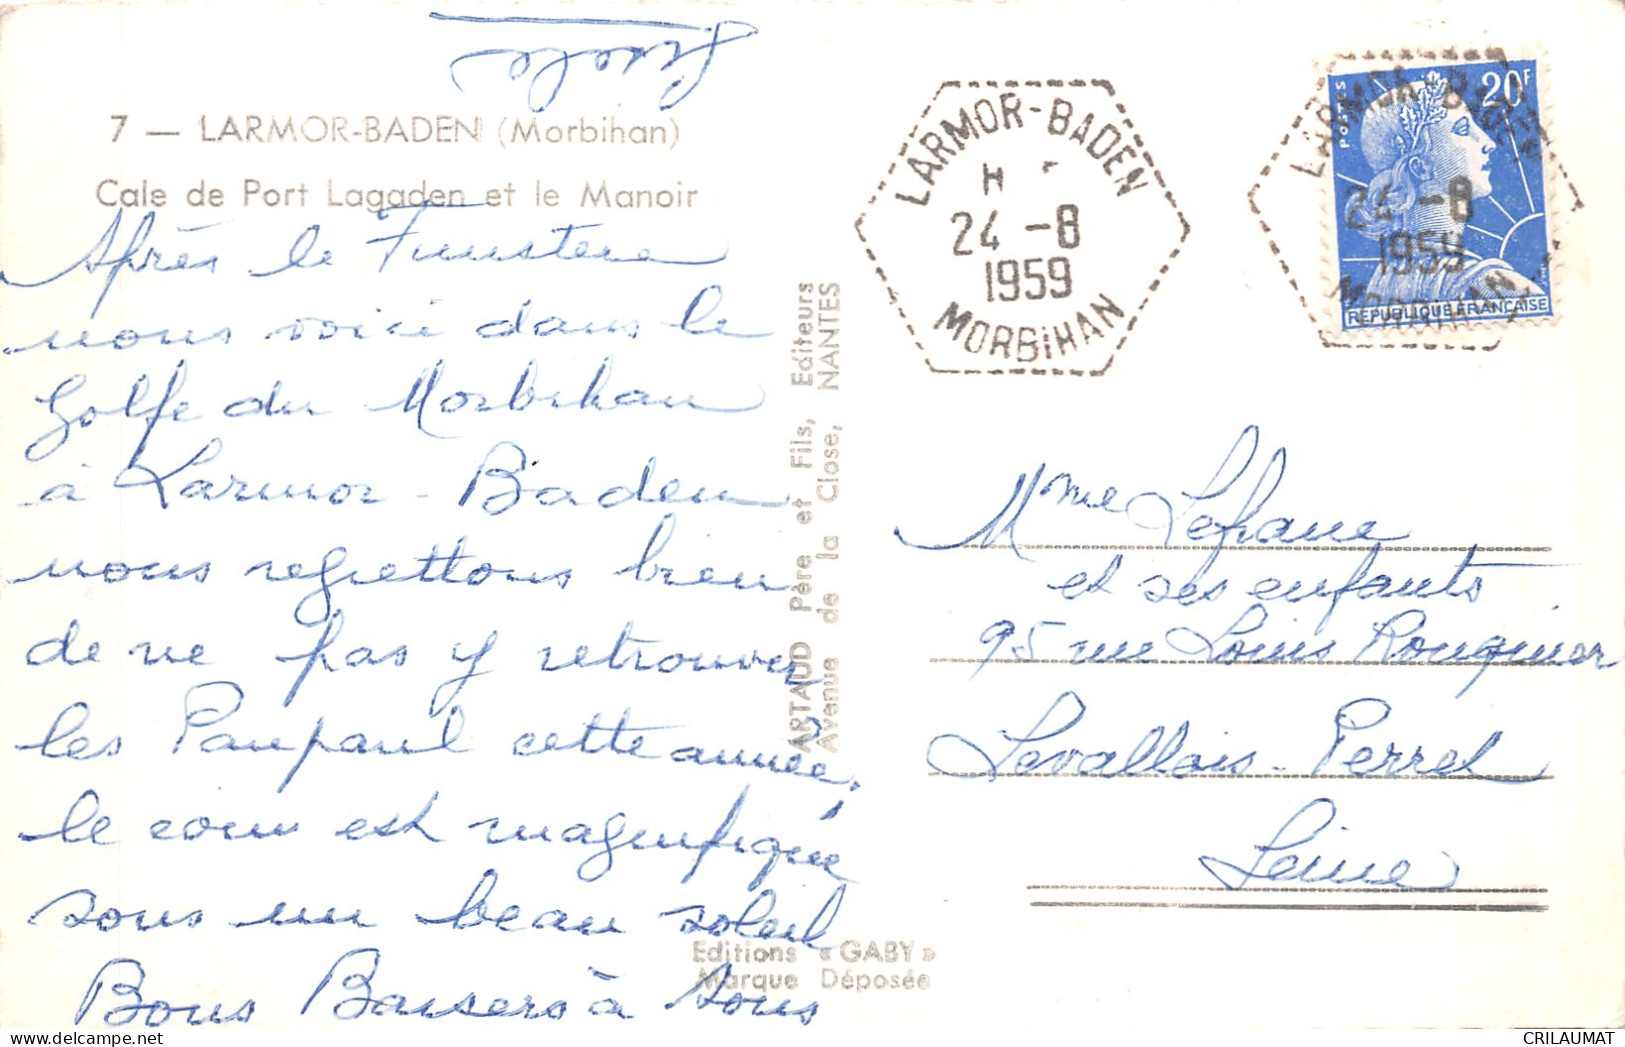 7 — LARMOR-BADEN (Morbihan)
Cale de Port Lagaden et le Manoir
Après le Finistere
nous voici dans le
Golfe du Morbihan
à Larmor - Baden
nous regrettons bien
de ne pas y retrouver
les Paupaul cette année,
le coin est magnifique
sous un beau soleil
Bons Baisers à tous
Gisèle
ARTAUD Père et Fils, Editeurs
Avenue de la Close, NANTES
Editions « GABY »
Marque Déposée
LARMOR-BADEN
H
24 -8
1959
MORBIHAN
LARMOR-BADEN
24 -8
1959
MORBIHAN
POSTES
20F
REPUBLIQUE FRANÇAISE
Mme Lefranc
et ses enfants
95 rue Louis Rouquier
Levallois-Perret
Seine
CRILAUMAT